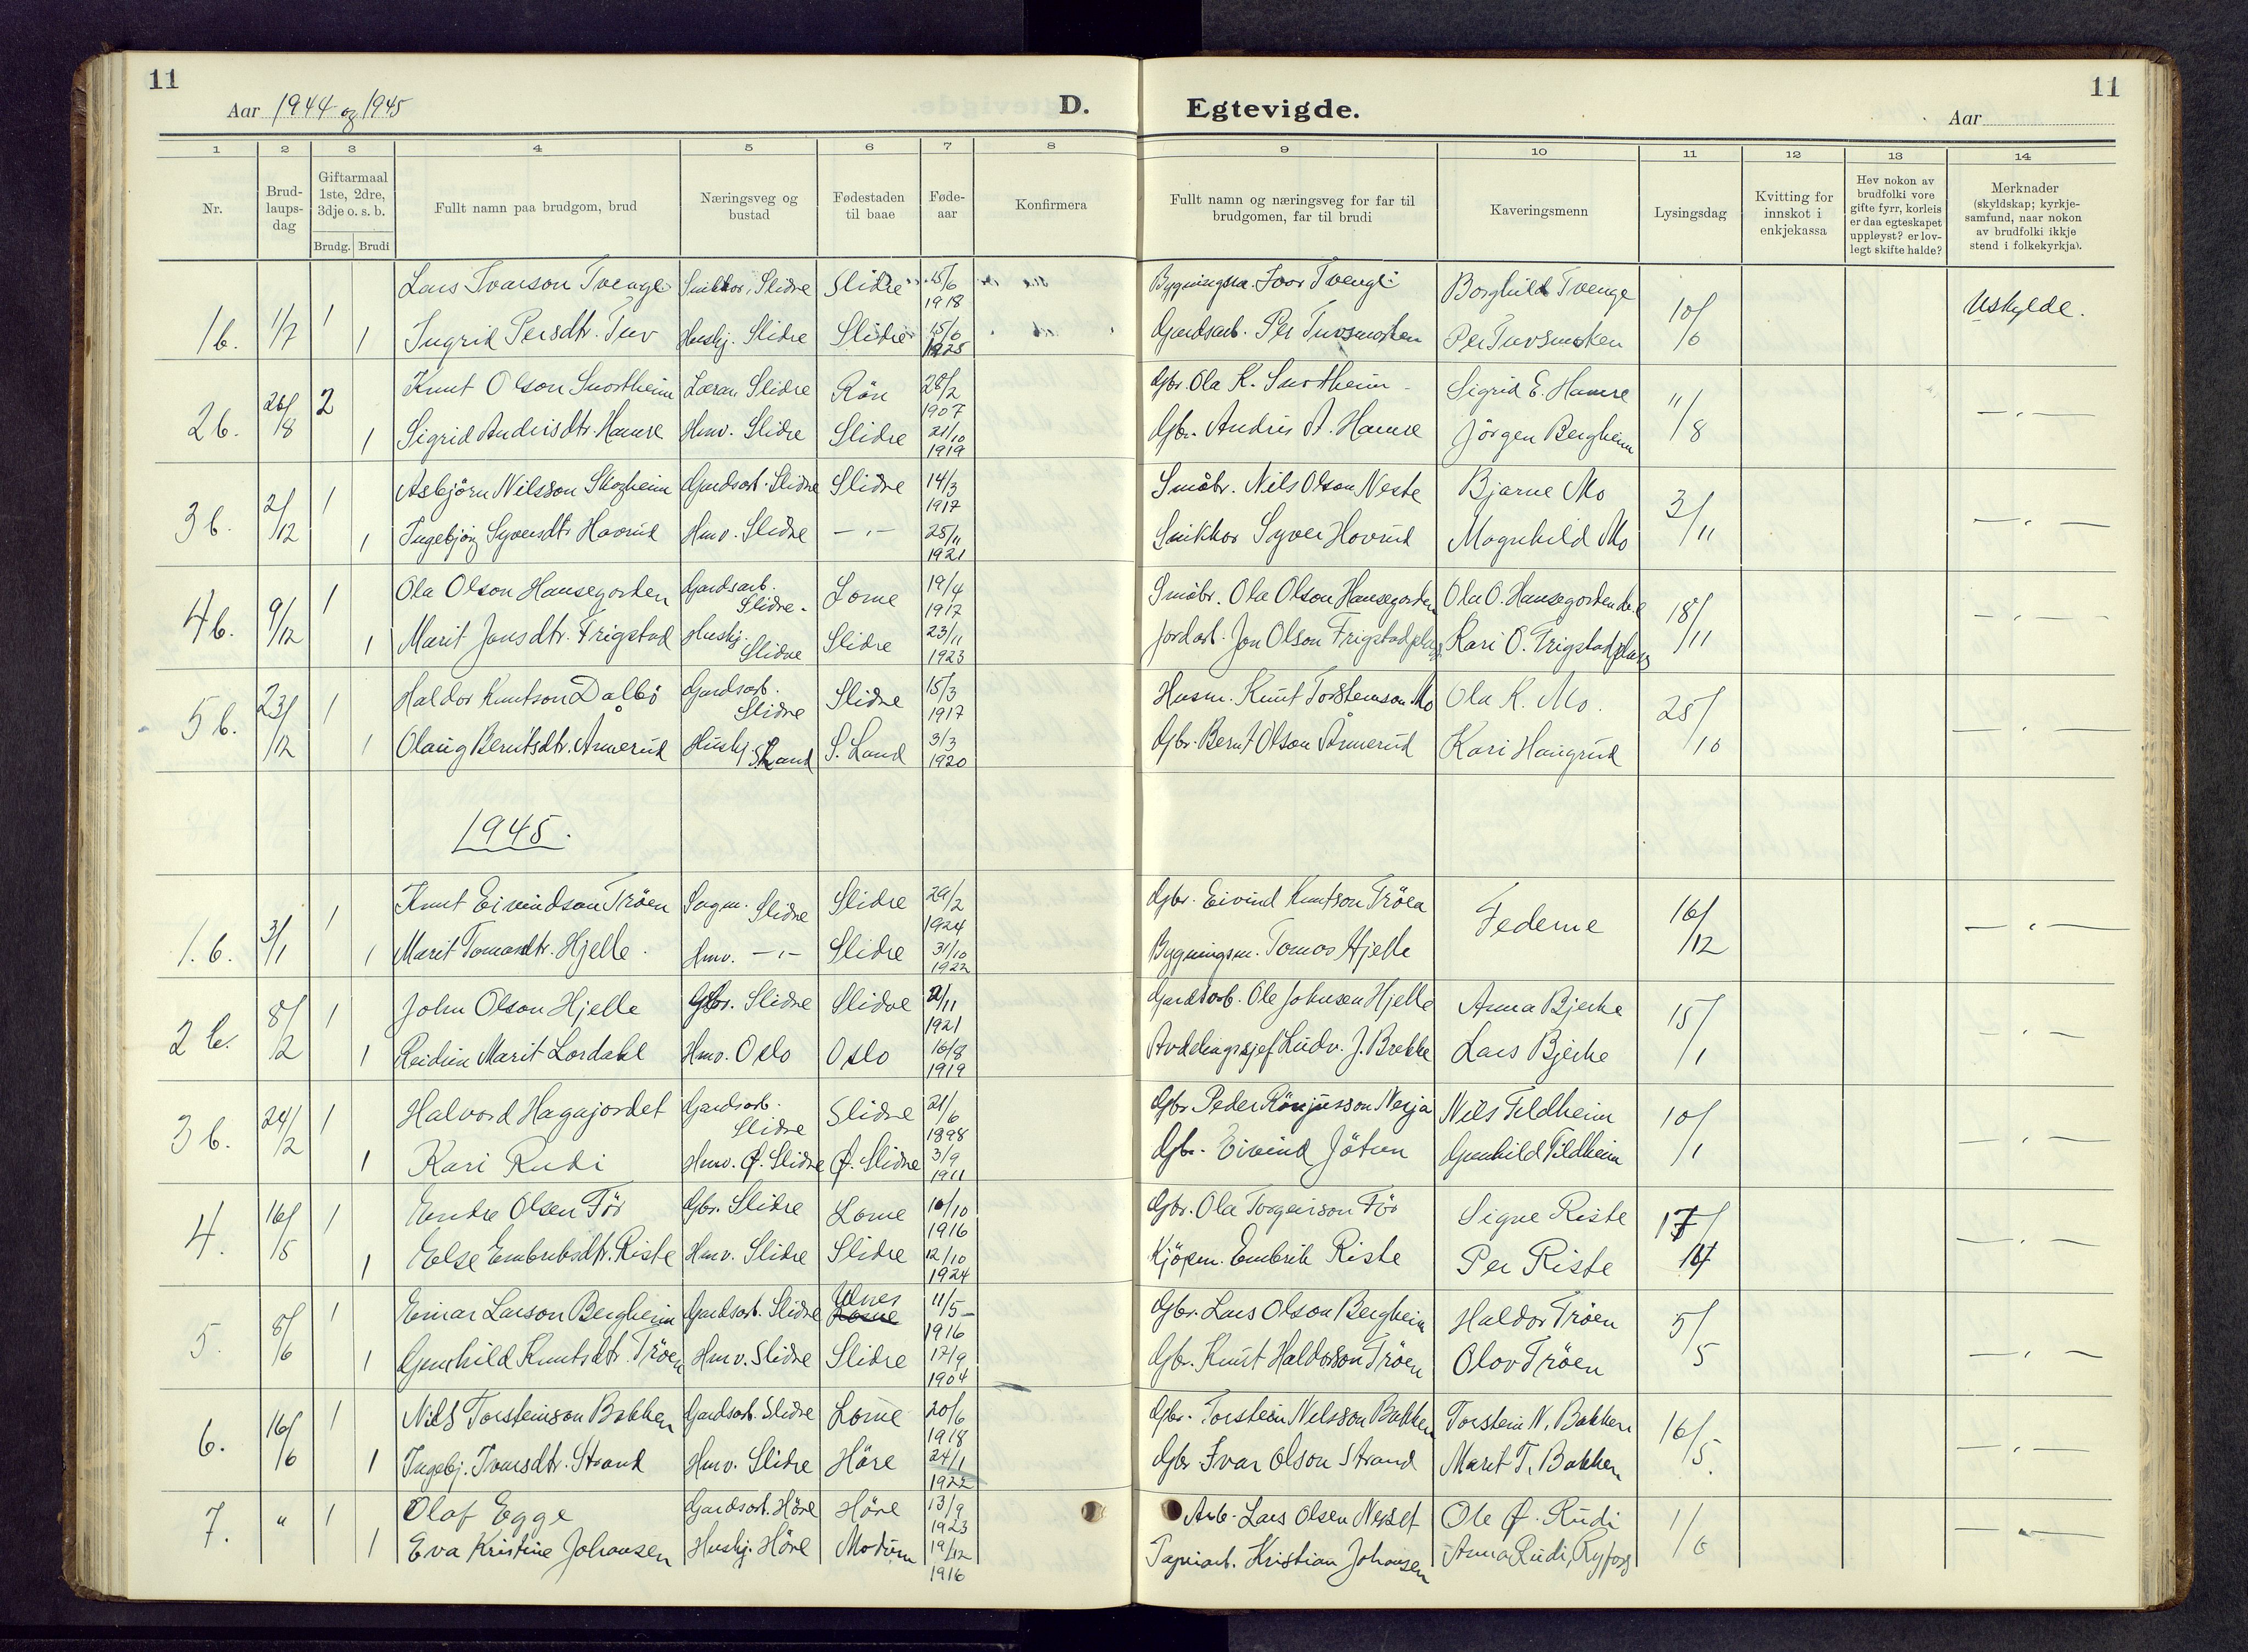 11
Aar 1944 og 1945
D.
Egtevigde.
Aar
11
1 2 3 4 5 6 7 8 9 10 11 12 13 14
Nr.
Brud-
laups-
dag
Giftarmaal
1ste, 2dre,
3dje o. s. b.
Brudg. Brudi
Fullt namn paa brudgom, brud
Næringsveg og
bustad
Fødestaden
til baae
Føde-
aar
Konfirmera
Fullt namn og næringsveg for far til
brudgomen, far til brudi
Kaveringsmenn
Lysingsdag
Kvitting for
innskot i
enkjekassa
Hev nokon av
brudfolki vore
gifte fyrr, korleis
er daa egteskapet
uppløyst? er lov-
legt skifte halde?
Merknader
(skyldskap; kyrkje-
samfund, naar nokon
av brudfolki ikkje
stend i folkekyrkja).
1b. 1/7 1 Lars Ivarson Tvenge Snikkar, Slidre Slidre 15/6 1918 Bygningsm. Ivar Tvenge Borghild Tvenge 10/6 Uskylde.
1 Ingrid Persdtr. Tuv Hushj. Slidre Slidre 15/6 1925 Gardsarb. Per Tuvsmoken Per Tuvsmoken
2b. 26/8 2 Knut Olson Snortheim Lærar, Slidre Røn 28/2 1907 Gbr. Ola K. Snortheim Sigrid E. Hamre 11/8 — " —
1 Sigrid Andrisdtr. Hamre Hmv. Slidre Slidre 21/10 1919 Gbr. Andris A. Hamre Jörgen Bergheim
3b. 2/12 1 Asbjörn Nilsson Skogheim Gardsarb. Slidre Slidre 14/3 1917 Småbr. Nils Olson Neste Bjarne Mo 3/11 — " —
1 Ingebjörg Syversdtr. Hovrud Hmv. Slidre — " — 25/11 1921 Snikkar Syver Hovrud Magnhild Mo
4b. 9/12 1 Ola Olson Hansegarden Gardsarb. Slidre. Lome 19/4 1917 Småbr. Ola Olson Hansegarden Ola O. Hansegarden d.e. 18/11 — " —
1 Marit Jonsdtr. Frigstad Hushj. Slidre Slidre 23/11 1923 Jordarb. Jon Olson Frigstadplass Kari O. Frigstadplass
5b. 23/12 1 Haldor Knutson Dalbö Gardsarb. Slidre Slidre 15/3 1917 Husm. Knut Torsteinson Mo Ola K. Mo. 25/10 — " —
1 Olaug Berntsdtr. Ånnerud Hushj. S. Land S. Land 3/3 1920 Gbr. Bernt Olson Ånnerud Kari Haugrud
1945.
1.b. 3/1 1 Knut Eivindson Tröen Sagm. Slidre Slidre 29/2 1924 Gbr. Eivind Knutson Tröen Federne 16/12 — " —
1 Marit Tomasdtr. Hjelle. Hmv. — " — Slidre 31/10 1922 Bygningsm. Tomas Hjelle
2b. 8/2 1 John Olson Hjelle Gbr. Slidre Slidre 2/11 1921 Gardsarb. Ole Johnsen Hjelle Anna Bjerke 15/1 — " —
1 Reidun Marit Lordahl Hmv. Oslo Oslo 16/8 1919 Avdelingssjef Ludv. J. Brekke Lars Bjerke
3b. 24/2 1 Halvord Hagajordet Gardsarb. Slidre Slidre 21/6 1898 Gbr. Peder Nerja Nils Fildheim 10/1 — " —
1 Kari Rudi Hmv. Ø. Slidre Ø. Slidre 3/9 1911 Gbr. Eivind Jötun Gunhild Fildheim
4. 16/5 1 Endre Olsen För Gbr. Slidre Lome 10/10 1916 Gbr. Ola Torgeirson För Signe Riste 17/ — " —
1 Else Embriksdtr. Riste Hmv. Slidre Slidre 12/10 1924 Kjöpm. Embrik Riste Per Riste
5. 8/6 1 Einar Larson Bergheim Gardsarb. Slidre Ulnes 11/5 1916 Gbr. Lars Olson Bergheim Haldor Tröen 5/5 — " —
1 Gunhild Knutsdtr. Tröen Hmv. Slidre Slidre 17/9 1904 Gbr. Knut Haldorson Tröen Olov Tröen
6. 16/6 1 Nils Torsteinson Bakken Gardsarb. Slidre Lome 20/6 1918 Gbr. Torstein Nilsson Bakken Torstein N. Bakken 16/5. — " —
1 Ingebj. Ivarsdtr. Strand Hmv. Slidre Höre 24/1 1922 Gbr. Ivar Olson Strand Marit T. Bakken
7. " 1 Olaf Egge Gardsarb. Höre Höre 13/9 1923 Arb. Lars Olsen Nesset Ole Ø. Rudi 1/6 — " —
1 Eva Kristine Johansen Hushj. Höre Modum 19/12 1916 Papirarb. Kristian Johansen Anna Rudi, Ryfoss